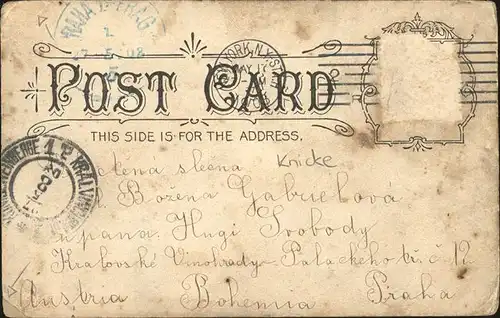 PRAHA 1 PRAG
1
27 5 08
YORK, N.Y. STA
MAY 17
POST CARD
THIS SIDE IS FOR THE ADDRESS.
slečna Knicke
Božena Gabrielová
u pana Hugi Svobody
Kralovské Vinohrady - Palackého tř. č. 12
Austria Bohemia Praha